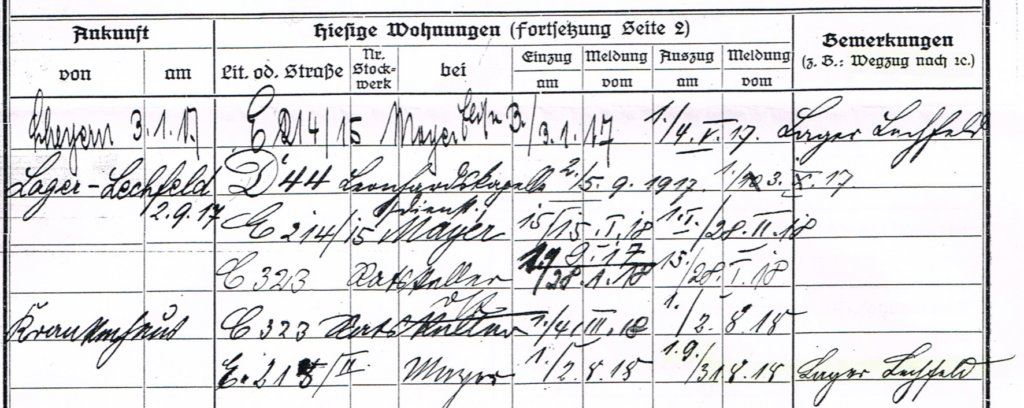 Ankunft Hiesige Wohnungen (Fortsetzung Seite 2) Bemerkungen (z. B.: Wegzug nach ıc.)
von am Lit. od. Straße Nr. Stock-werk bei Einzug am Meldung vom Auszug am Meldung vom
Scheyern 3.1.17 E 214/15 Mayer 3./3.1.17 1./4.V.17. Lager Lechfeld
Lager-Lechfeld D 44 Leonhardskapelle 2./5.9.1917. 1./3.X.17
2.9.17 E 214/15 Mayer 15/15.I.18 1.II./28.II.18
C 323 Ratskeller /28.1.18 15./28.I.18
Krankenhaus C 323 Ratskeller 1./4.III.18 1./2.8.18
E. 215/II Mayer 1./2.8.18 19./31.8.18 Lager Lechfeld